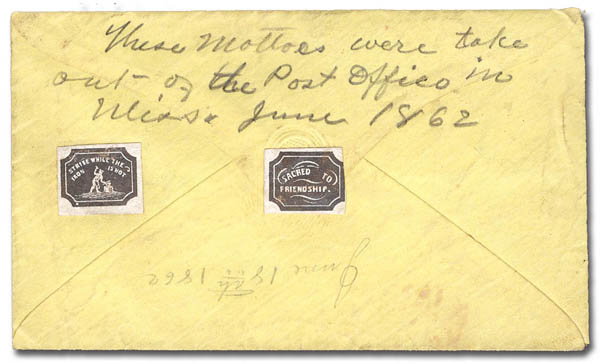 These Mottoes were take
out of the Post Office in
Miss. June 1862
STRIKE WHILE THE
IRON IS HOT
SACRED TO
FRIENDSHIP.
June 18th 1862